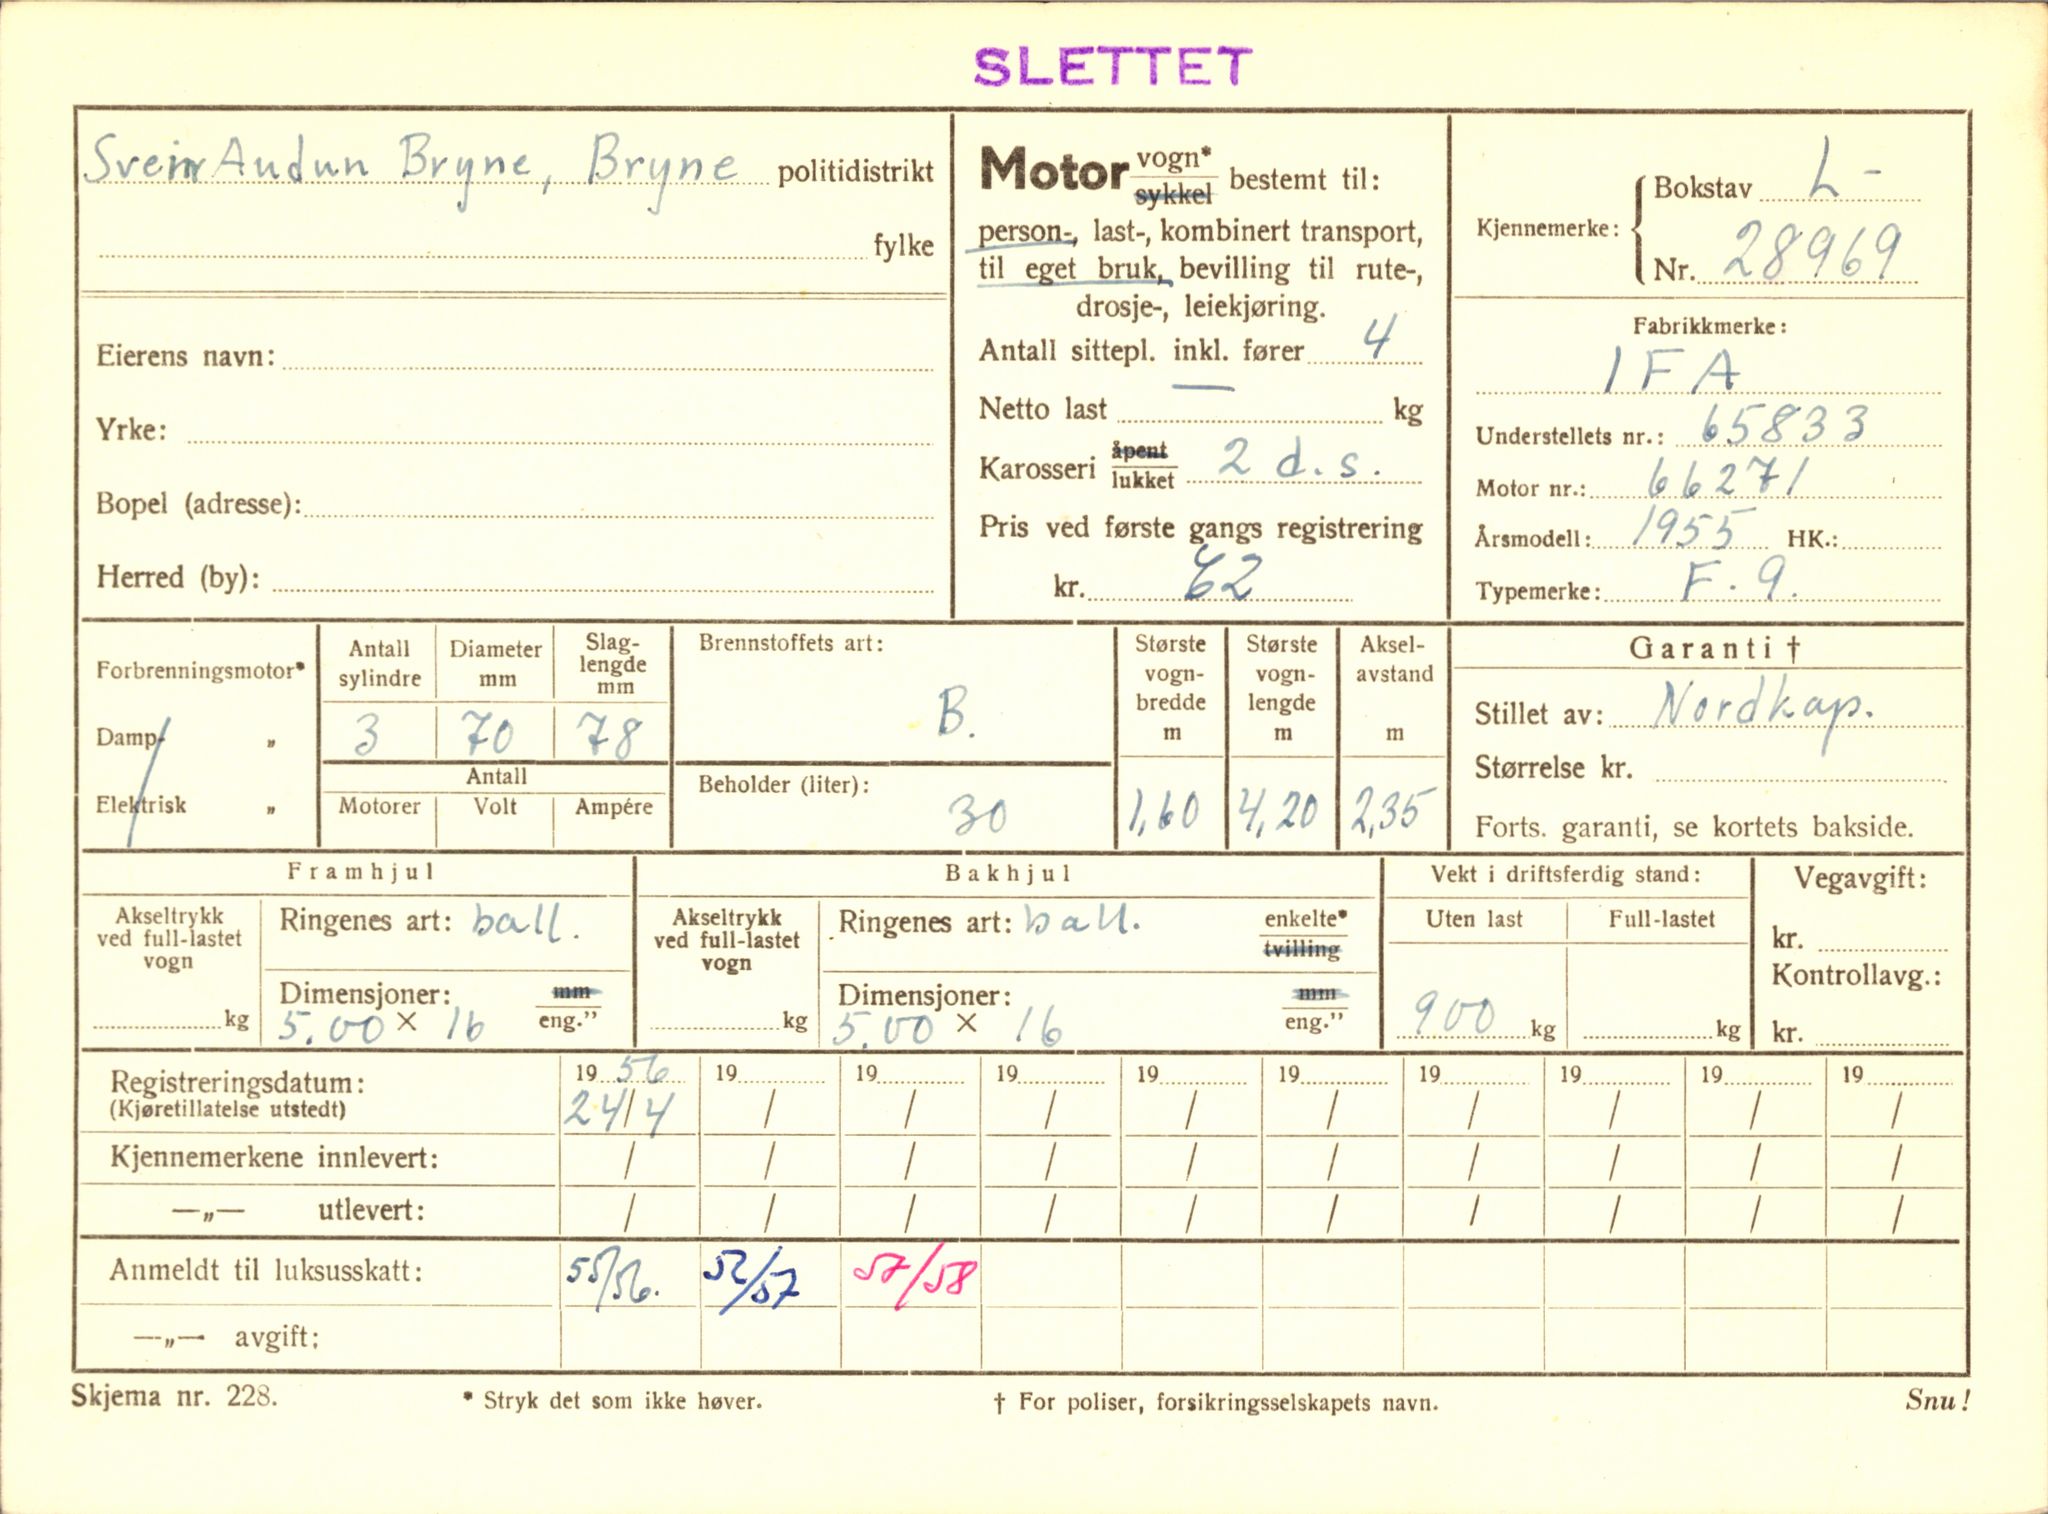 SLETTET
Svein Audun Bryne, Bryne politidistrikt
fylke
Eierens navn:
Yrke:
Bopel (adresse):
Herred (by):
Motor vogn* sykkel bestemt til:
person-, last-, kombinert transport,
til eget bruk, bevilling til rute-,
drosje-, leiekjøring.
Antall sittepl. inkl. fører 4
Netto last — kg
Karosseri åpent lukket 2 d.s.
Pris ved første gangs registrering
kr. 62
Kjennemerke: Bokstav L-
Nr. 28969
Fabrikkmerke:
IFA
Understellets nr.: 65833
Motor nr.: 66271
Årsmodell: 1955 HK.:
Typemerke: F. 9.
Forbrenningsmotor*
Damp- „
Elektrisk „
Antall sylindre
Diameter mm
Slag-lengde mm
3 70 78
Antall
Motorer Volt Ampére
Brennstoffets art:
B.
Beholder (liter):
30
Største vogn-bredde m
1,60
Største vogn-lengde m
4,20
Aksel-avstand m
2,35
Garanti †
Stillet av: Nordkap.
Størrelse kr.
Forts. garanti, se kortets bakside.
Framhjul
Akseltrykk ved full-lastet vogn
kg
Ringenes art: ball.
Dimensjoner: mm
5.00 × 16 eng.”
Bakhjul
Akseltrykk ved full-lastet vogn
kg
Ringenes art: ball. enkelte* tvilling
Dimensjoner: mm
5.00 × 16 eng.”
Vekt i driftsferdig stand:
Uten last Full-lastet
900 kg kg
Vegavgift:
kr.
Kontrollavg.:
kr.
Registreringsdatum: 19 56 19 19 19 19 19 19 19 19 19
(Kjøretillatelse utstedt) 24/4 / / / / / / / / /
Kjennemerkene innlevert: / / / / / / / / / /
—„— utlevert: / / / / / / / / / /
Anmeldt til luksusskatt: 55/56. 57/58
—„— avgift:
Skjema nr. 228. * Stryk det som ikke høver. † For poliser, forsikringsselskapets navn. Snu!